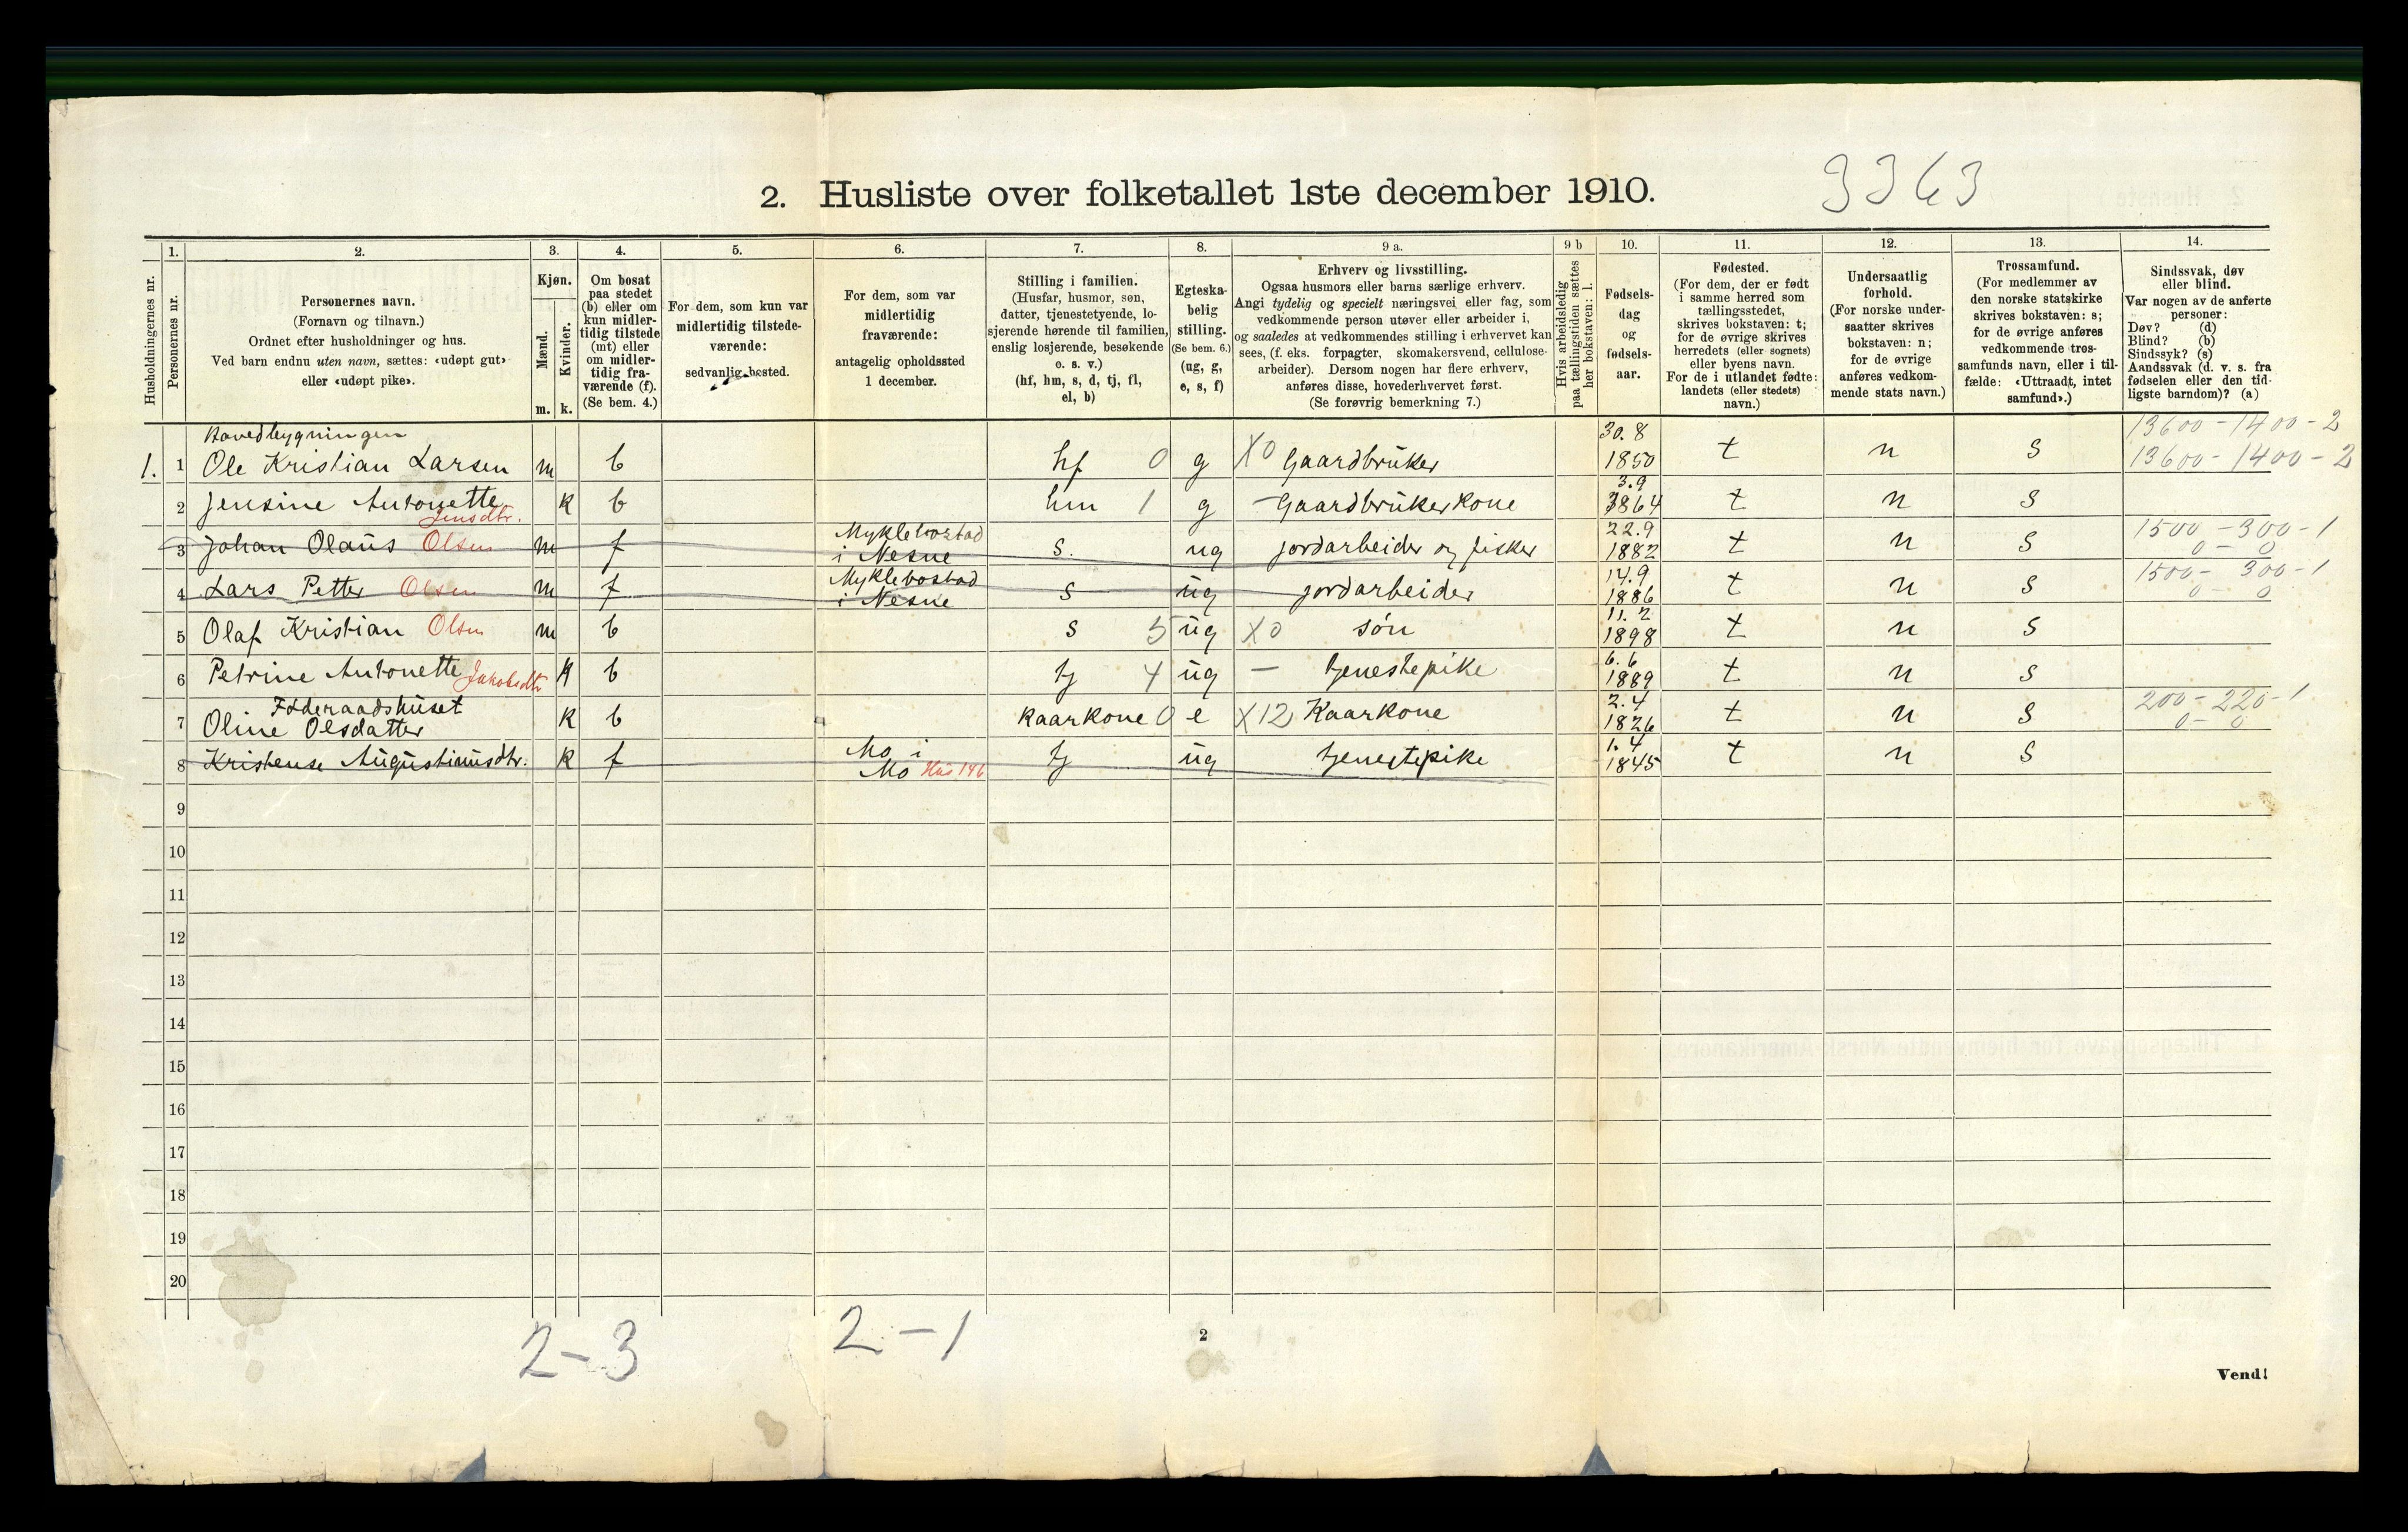 2. Husliste over folketallet 1ste december 1910.
3363
Husholdningernes nr.
1.
Personernes nr.
2.
Personernes navn.
(Fornavn og tilnavn.)
Ordnet efter husholdninger og hus.
Ved barn endnu uten navn, sættes: «udøpt gut»
eller «udøpt pike».
3.
Kjøn.
Mænd.
Kvinder.
m. k.
4.
Om bosat
paa stedet
(b) eller om
kun midler-
tidig tilstede
(mt) eller
om midler-
tidig fra-
værende (f).
(Se bem. 4.)
5.
For dem, som kun var
midlertidig tilstede-
værende:
sedvanlig bosted.
6.
For dem, som var
midlertidig
fraværende:
antagelig opholdssted
1 december.
7.
Stilling i familien.
(Husfar, husmor, søn,
datter, tjenestetyende, lo-
sjerende hørende til familien,
enslig losjerende, besøkende
o. s. v.)
(hf, hm, s, d, tj, fl,
el, b)
8.
Egteska-
belig
stilling.
(Se bem. 6.)
(ug, g,
e, s, f)
9 a.
Erhverv og livsstilling.
Ogsaa husmors eller barns særlige erhverv.
Angi tydelig og specielt næringsvei eller fag, som
vedkommende person utøver eller arbeider i,
og saaledes at vedkommendes stilling i erhvervet kan
sees, (f. eks. forpagter, skomakersvend, cellulose-
arbeider). Dersom nogen har flere erhverv,
anføres disse, hovederhvervet først.
(Se forøvrig bemerkning 7.)
9 b
Hvis arbeidsledig
paa tællingstiden sættes
her bokstaven: l.
10.
Fødsels-
dag
og
fødsels-
aar.
11.
Fødested.
(For dem, der er født
i samme herred som
tællingsstedet,
skrives bokstaven: t;
for de øvrige skrives
herredets (eller sognets)
eller byens navn.
For de i utlandet fødte:
landets (eller stedets)
navn.)
12.
Undersaatlig
forhold.
(For norske under-
saatter skrives
bokstaven: n;
for de øvrige
anføres vedkom-
mende stats navn.)
13.
Trossamfund.
(For medlemmer av
den norske statskirke
skrives bokstaven: s;
for de øvrige anføres
vedkommende tros-
samfunds navn, eller i til-
fælde: «Uttraadt, intet
samfund».)
14.
Sindssvak, døv
eller blind.
Var nogen av de anførte
personer:
Døv? (d)
Blind? (b)
Sindssyk? (s)
Aandssvak (d. v. s. fra
fødselen eller den tid-
ligste barndom)? (a)
Hovedbygningen 30.8 13600-1400-2
1. 1 Ole Kristian Larsen m b hf 0 g X0 Gaardbruker 1850 t n s 13600-1400-2
3.9
2 Jensine Antonette k b hm 1 g - Gaardbrukerkone 1864 t n s
Jensdtr.
Myklebostad 22.9 1500-300-1
3 Johan Olaus Olsen m f i Nesne s. ug jordarbeider og fisker 1882 t n s 0-0
Myklebostad 14.9 1500-300-1
4 Lars Petter Olsen m f i Nesne s ug jordarbeider 1886 t n s 0-0
11.2
5 Olaf Kristian Olsen m b s 5 ug X0 søn 1898 t n s
6.6
6 Petrine Antonette Jakobsdtr k b tj 4 ug - tjenestepike 1889 t n s
Føderaadshuset 2.4 200-220-1
7 Oline Olsdatter k b kaarkone 0 e X12 Kaarkone 1826 t n s 0-0
Mo i 1.4
8 Kristense Augustinusdtr. k f Mo Hus 146 tj ug tjenestepike 1845 t n s
9
10
11
12
13
14
15
16
17
18
19
20
2-3 2-1
2
Vend!